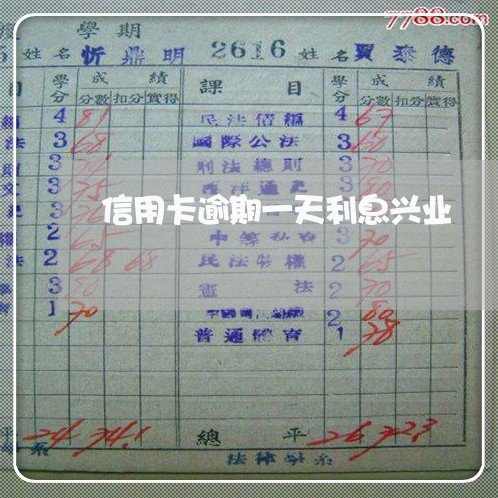 7788.com
學期
姓名 忻鼎明 2616 姓名 賈泰德
目 學分 成績 課目 學分 成績
分數 扣分 實得 分數 扣分 實得
4 81 民法債編 4 67
法 3 68 國際公法 3 60
3 刑法總則 3 70
文 3 75 西洋通史 3
信用卡逾期一天利息兴业
2 65 3 70
法 2 68 68 民法物權 2 65
3 80 憲法 2 70
育 1 70 2 80
普通體育 1 78
平 24 74.1 總平 26 72.3
系 法律學系